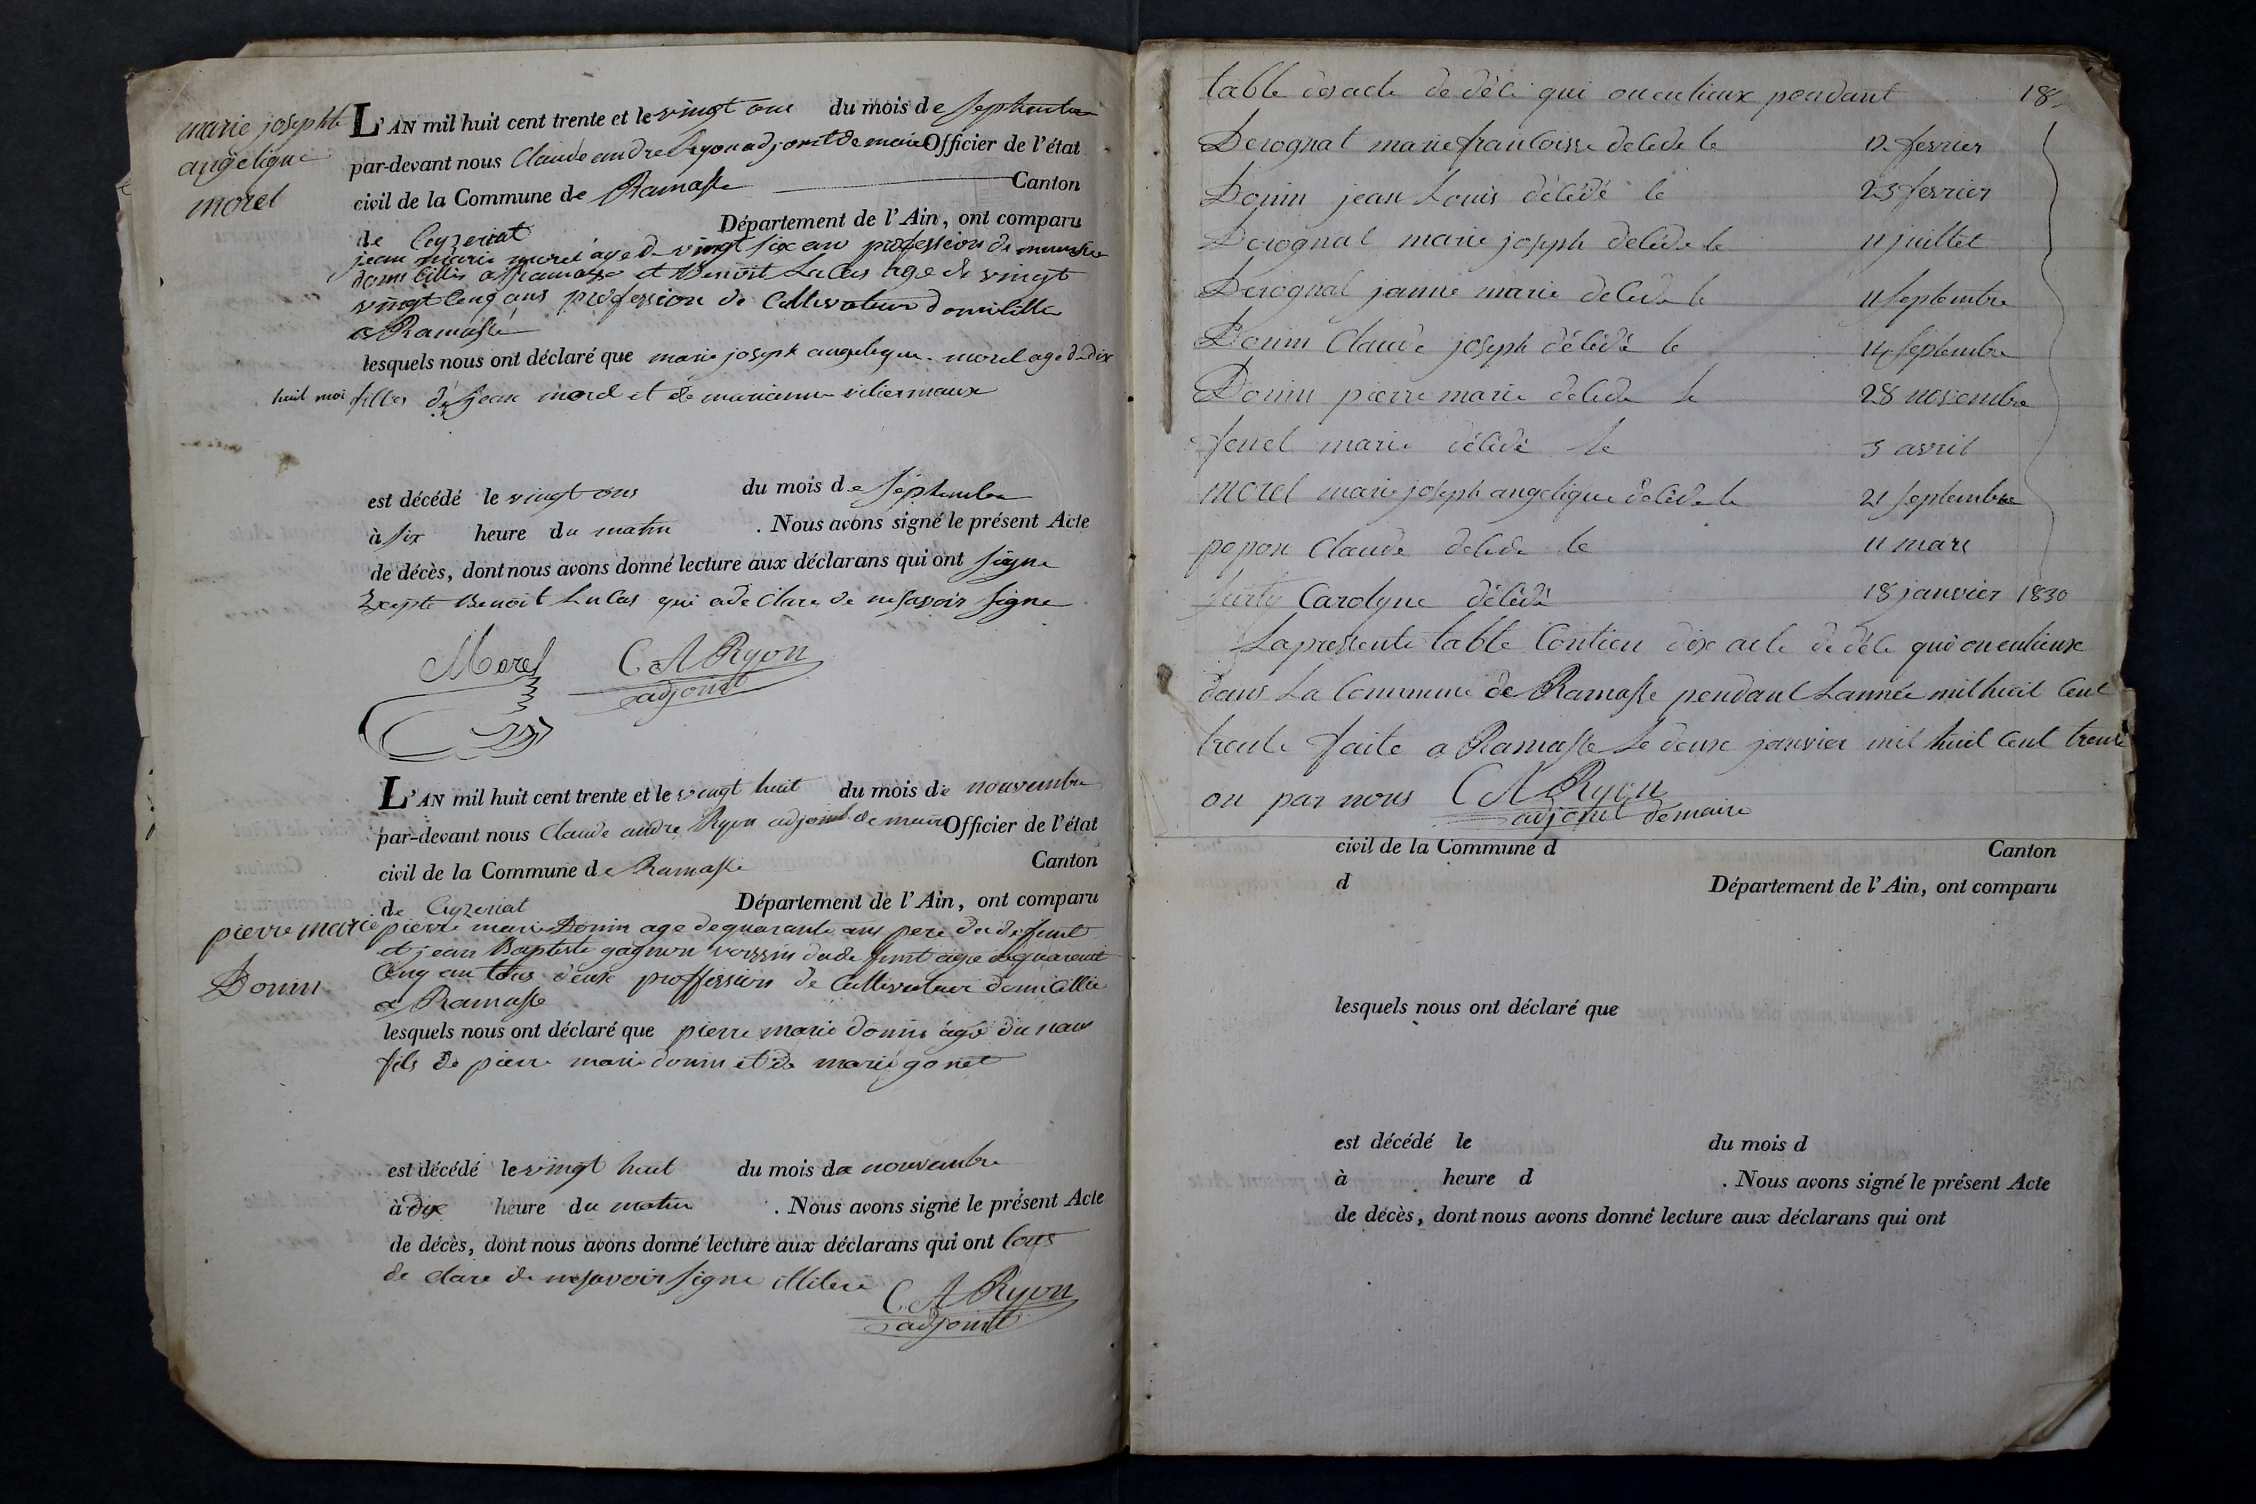 marie josephte
angelique
morel
L'AN mil huit cent trente et le vingt onc du mois de septembre
par-devant nous Claude andre Ryon adjoint de maire Officier de l'état
civil de la Commune de Ramasse Canton
de Ceyzeriat Département de l'Ain, ont comparu
jean marie morel age de vingt six an profession de
domicillie a Ramasse et Benoit Lucas age de vingt
vingt Cenq ans profession de Cultivateur domicillie
a Ramasse
lesquels nous ont déclaré que marie joseph angelique morel age de dix
huit moi filles de jean morel et de marianne
est décédé le vingt onc du mois de septembre
à six heure du matin . Nous avons signé le présent Acte
de décès, dont nous avons donné lecture aux déclarans qui ont signe
Excepte Benoit Lucas qui a de Clare de ne savoir signe
Morel C A Ryon
adjoint
L'AN mil huit cent trente et le vingt huit du mois de nouvembre
par-devant nous Claude andre Ryon adjoint de maire Officier de l'état
civil de la Commune de Ramasse Canton
de Ceyzeriat Département de l'Ain, ont comparu
pierre marie
Donin
pierre marie Donin age de quarante ans pere du defunt
et jean Baptiste gagnon voissin du de funt age de quarente
Cenq an tous deux proffession de Cultivateur domicillie
a Ramasse
lesquels nous ont déclaré que pierre marie donin âgé
fils de pierre marie donin et de marie gonet
est décédé le vingt huit du mois de nouvembre
à dix heure du matin . Nous avons signé le présent Acte
de décès, dont nous avons donné lecture aux déclarans qui ont tous
de clare de ne savoir signe illitere
C A Ryon
adjoint
table des acte de déce qui on eu lieux pendant 18
Derognat marie francoisse decede le 12 fevrier
Donin jean Louis décédé le 23 fevrier
Derognat marie joseph decede le 11 juillet
Derognat janne marie decede le 11 septembre
Donin Claude joseph décédé le 14 septembre
Donin pierre marie decede le 28 novembre
fenet marie décédé le 3 avril
morel marie joseph angelique decede le 21 septembre
popon Claude decede le 11 mars
Carolyne décédé 18 janvier 1830
La pressente table Contien dix acte de déce qui on eu lieux
dans La Commune de Ramasse pendant Lannée mil huit Cent
trente faite a Ramasse le deux janvier mil huit Cent trente
on par nous C A Ryon
adjoint de maire
civil de la Commune d Canton
d Département de l'Ain, ont comparu
lesquels nous ont déclaré que
est décédé le du mois d
à heure d . Nous avons signé le présent Acte
de décès, dont nous avons donné lecture aux déclarans qui ont